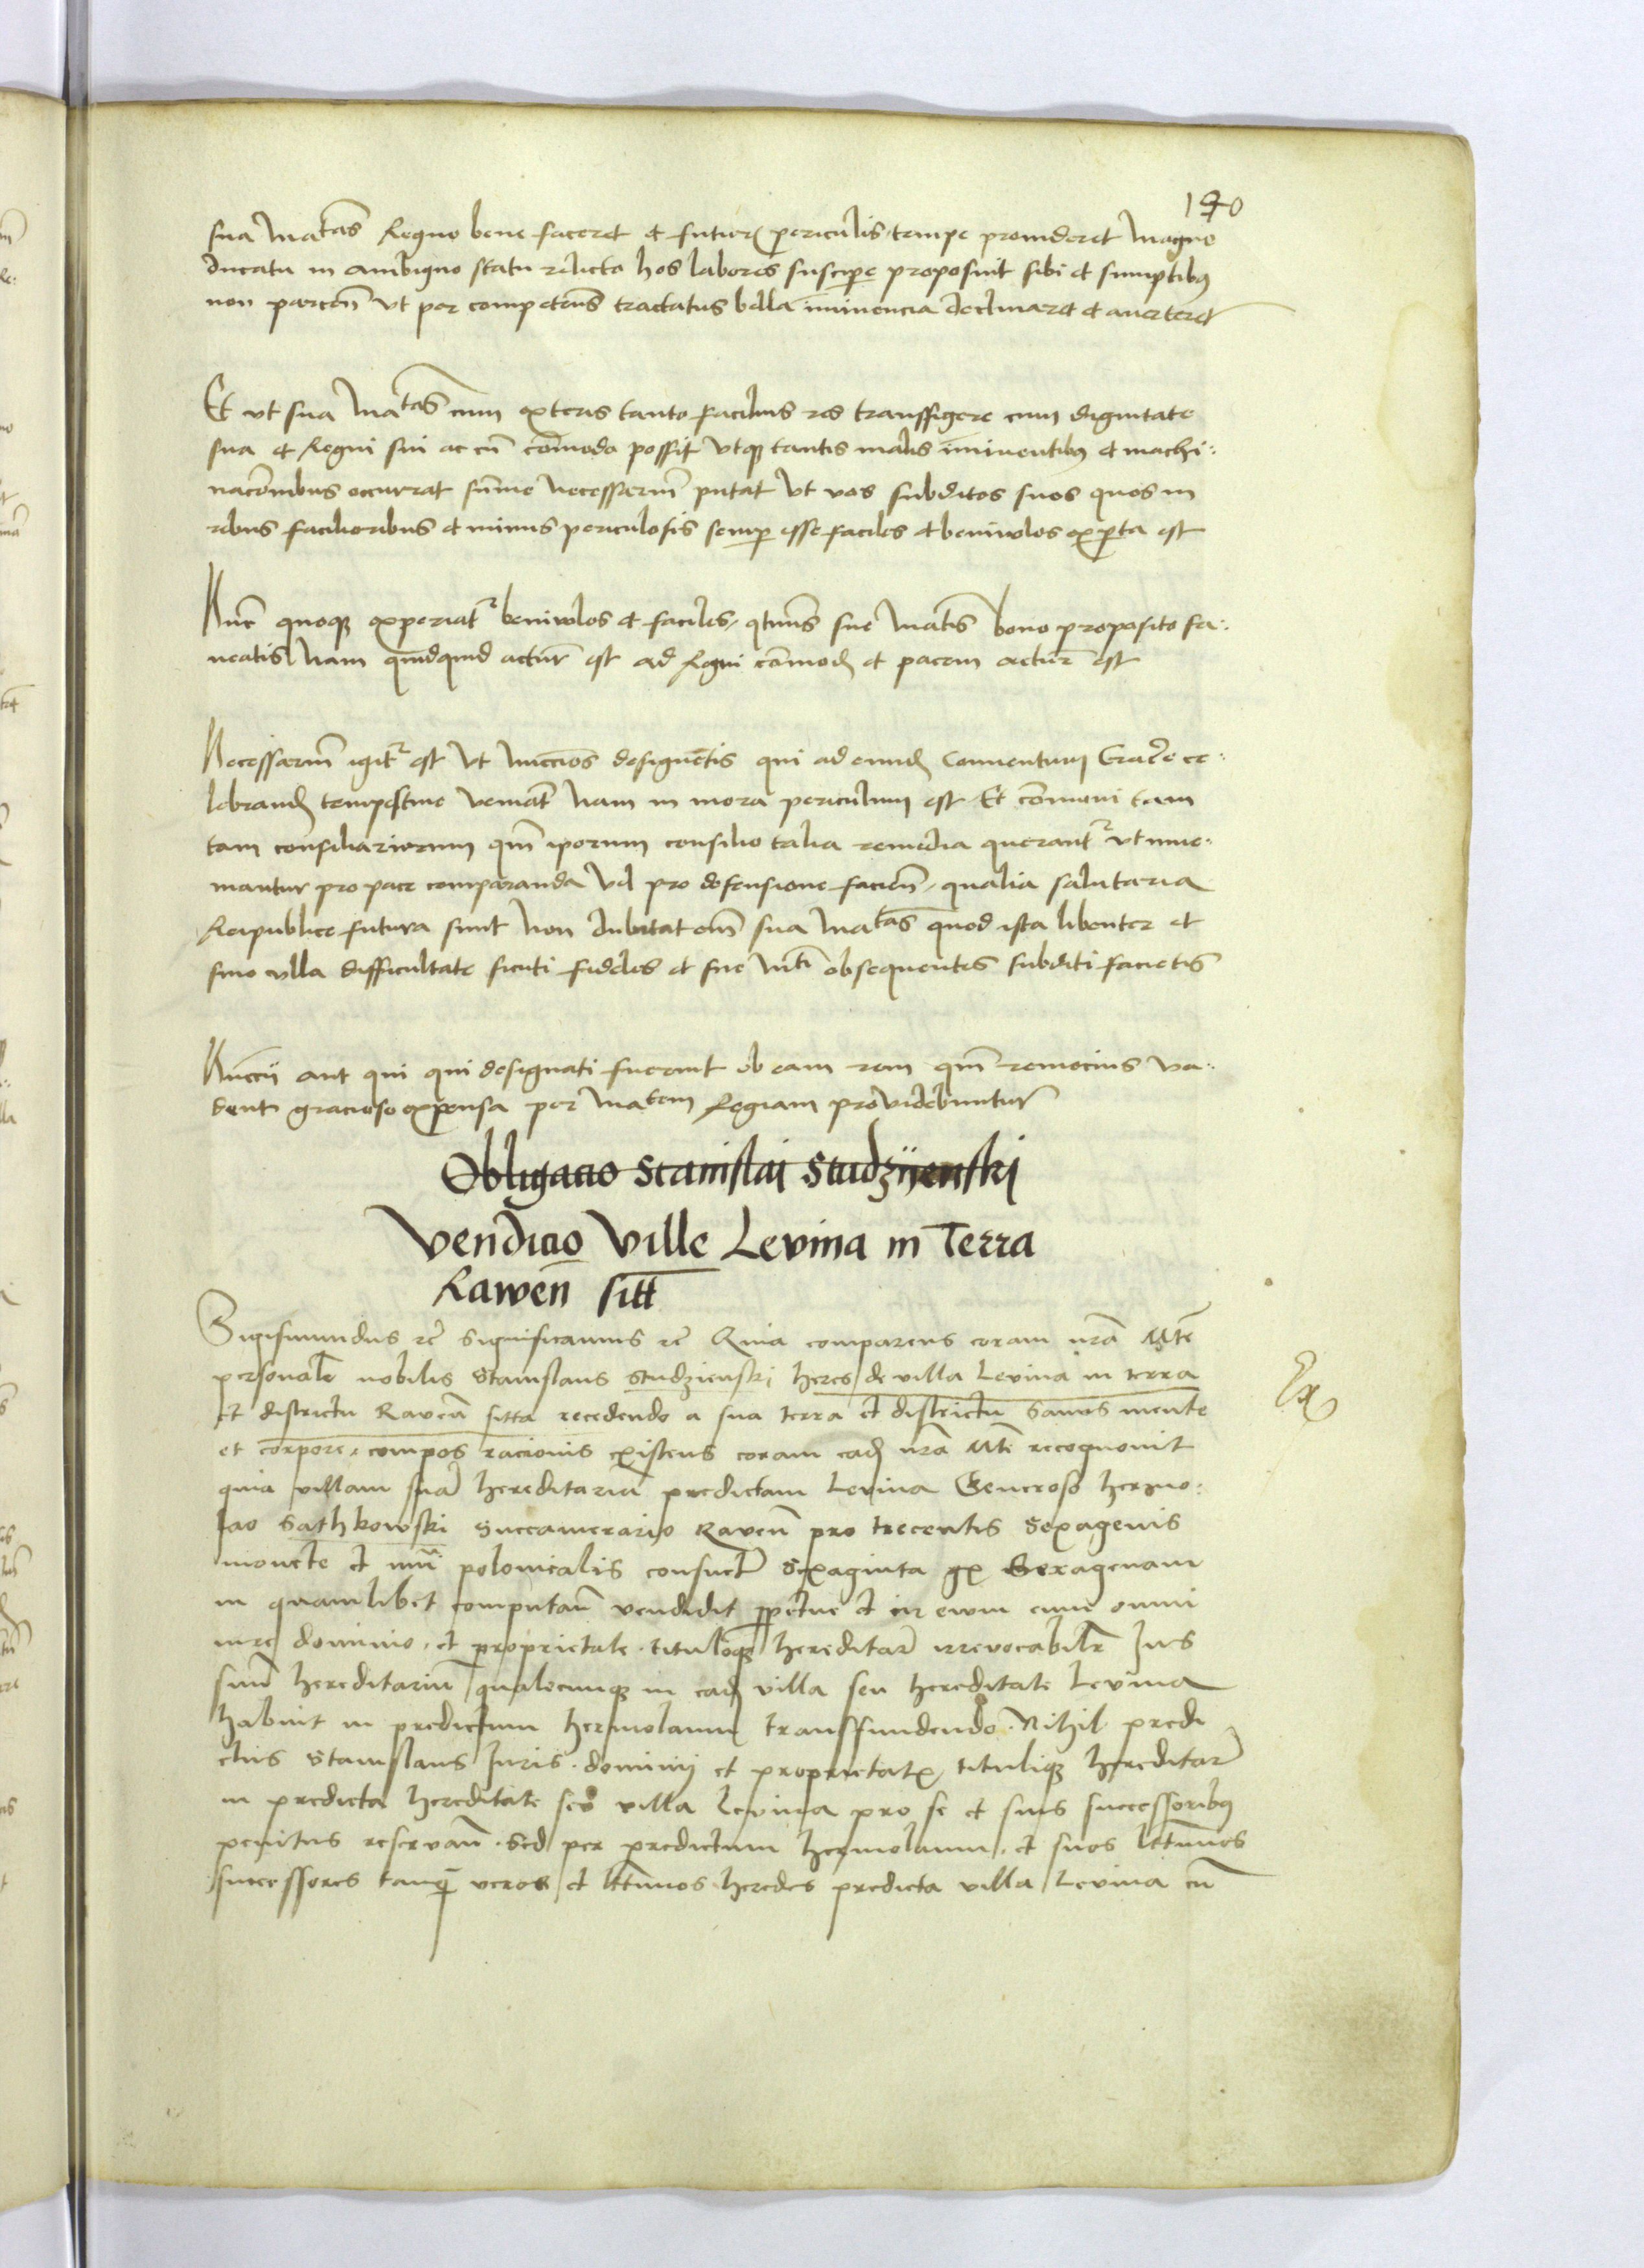 190
sua Ma^tas Regno bene faceret et futur periculis tempe prouideret Magno
ducatu in ambiguo statu relicto hos labores suscipe proposuit sibi et sumptibus
non parcen̄ vt per competen̄s tractatus bella iminencia declinaret et auerteret
Et vt sua Ma^tas cum exteris tanto facilius res transsigere cum dignitate
sua et Regni sui ac cū cōmodo possit vtque tantis malis iminentibus et machi:
nacōnibus occurrat sūme necessariū putat vt vos subditos suos quos in
rebus facilioribus et minus periculosis semp esse faciles et beniuolos experta est
Nūc quoque experiat beniuolos et faciles, qtenus sue Matis bono proposito fa:
ueatis Nam quidquid actur est ad Regni cōmod et pacem actur est
Necessariū igitr est vt nuccios designetis qui ad eund Conuentum Cracie ce:
lebrand tempestiue veniāt Nam in mora periculum est Et cōmuni tam
tam consiliariorum qm̄ iporum consilio talia remedia querantr vt inue:
niantur pro pace comparanda vel pro defensione facien̄, qualia salutaria
Reipublice futura sunt Non dubitat em̄ sua Ma^tas quod ista libenter et
sine vlla difficultate sicuti fideles et sue Mti obsequentes subditi facietis
Nūccii aut qui qui designati fuerint ob eam rem qm̄ remocius va:
dent gracioso expensa per Ma^tem Regiam prouidebuntur
Obligacio Stanislai Studzijenski
Vendicio Ville Levina in Terra
Rawen̄ sitt
Sigismundus rc̄ Significamus rc̄ Quia comparens coram nrā Mte
personalr nobilis Stanislaus Studzienski heres de villa Levina in terra
et districtu Raven̄ sitta recedendo a sua terra et districtu sanus mente
et corpore, compos racionis existens coram ead nrā Mte recognouit
quia villam suā hereditariā predictam Levina Generoso hermo:
lao Sathkowski Succamerario Raven̄ pro trecentis Sexagenis
monete et nūi polonicalis consuet Sexaginta gr Sexagenam
in quamlibet computan̄ vendidit ppetue et in ewm cum omni
iure dominio, et proprietate tituloque hereditar irrevocabilr Ius
suū hereditariū qualecumque in ead villa seu hereditate Levina
habuit in predictum hermolaum transfundendo. Nihil predi
ctus Stanislaus Iuris dominij et proprietatis titulique hereditar
in predicta hereditate seu villa Levina pro se et suis successoribus
penitus reservan̄. Sed per predictum hermolaum, et suos lttimos
successores tanq̄ veros et lttimos heredes predicta villa Levina cū